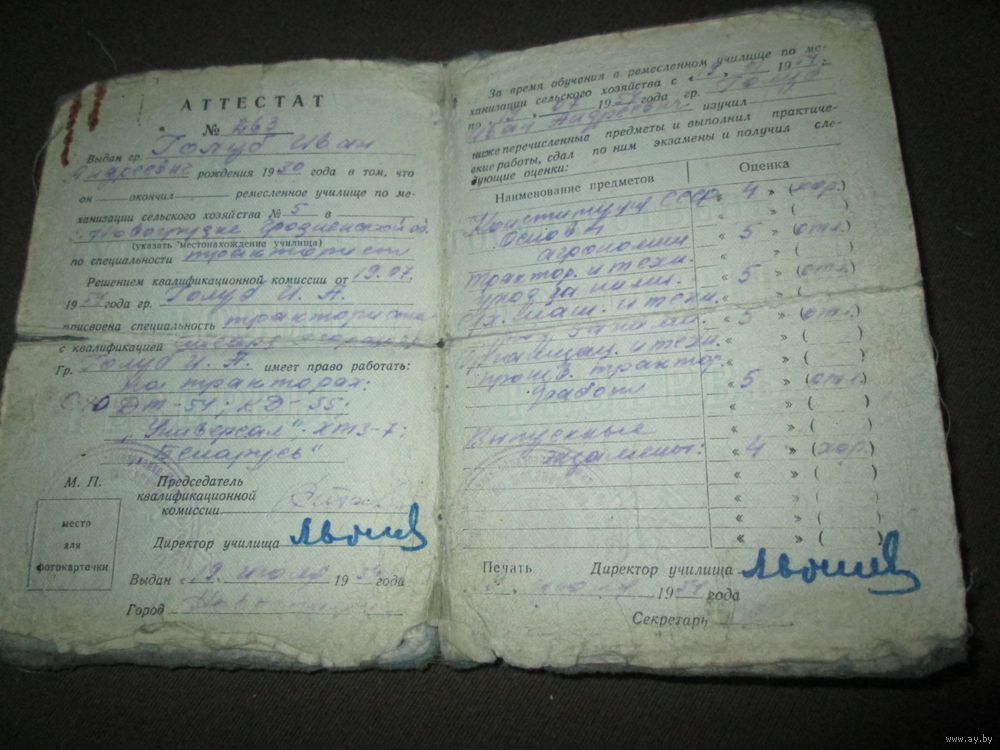 АТТЕСТАТ
№ 263
Выдан гр. Голуб Иван
Андреевич рождения 1930 года в том, что
он окончил ремесленное училище по ме-
ханизации сельского хозяйства № 5 в
г. Новогрудке Гродненской об.
(указать местонахождение училища)
по специальности тракторист
Решением квалификационной комиссии от 19.07.
19 года гр. Голуб И. А.
присвоена специальность тракториста
с квалификацией
Гр. Голуб И. А. имеет право работать:
на тракторах:
ДТ-54; КД-35.
„Универсал" ХТЗ-7;
Беларусь"
М. П. Председатель
квалификационной
комиссии
место
для
фотокарточки
Директор училища
Выдан 19. июля 19 года
Город
За время обучения в ремесленном училище по ме-
ханизации сельского хозяйства с « » 19 г.
по 19 года гр. Голуб
Иван Андреевич изучил
нижеперечисленные предметы и выполнил практиче-
ские работы, сдал по ним экзамены и получил сле-
дующие оценки:
Наименование предметов Оценка
Конституция СССР « 4 » (хор.)
Основы « » ( )
агрономии « 5 » (отл.)
Трактор. и техн. « » ( )
уход за ними. « 5 » (отл.)
С/х. маш. и техн. « » ( )
« 5 » (отл.)
и техн. « » ( )
трактор. « » ( )
работ « 5 » (отл.)
« » ( )
Выпускные « » ( )
экзамены: « 4 » (хор.)
« » ( )
« » ( )
« » ( )
« » ( )
Печать Директор училища
19 года
Секретарь
www.ay.by